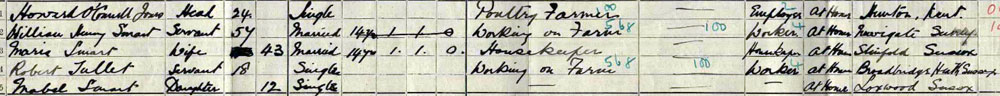 Howard O'Connell Jones Head 24. Single Poultry Farmer 100 Employer At Home Kent.
2 William Henry Smart Servant 54 Married 14 yrs 1 1 0 Working on Farm 568 — 100 Worker 4 At Home
3 Maria Smart Wife 43 Married 14 yrs 1. 1. 0. Housekeeper — At Home Slinfold Sussex
4 Robert Tullet Servant 18 Single Working on Farm 568 — 100 Worker 4 At Home Broadbridge Heath Sussex
5 Mabel Smart Daughter 12 Single At Home Loxwood Sussex